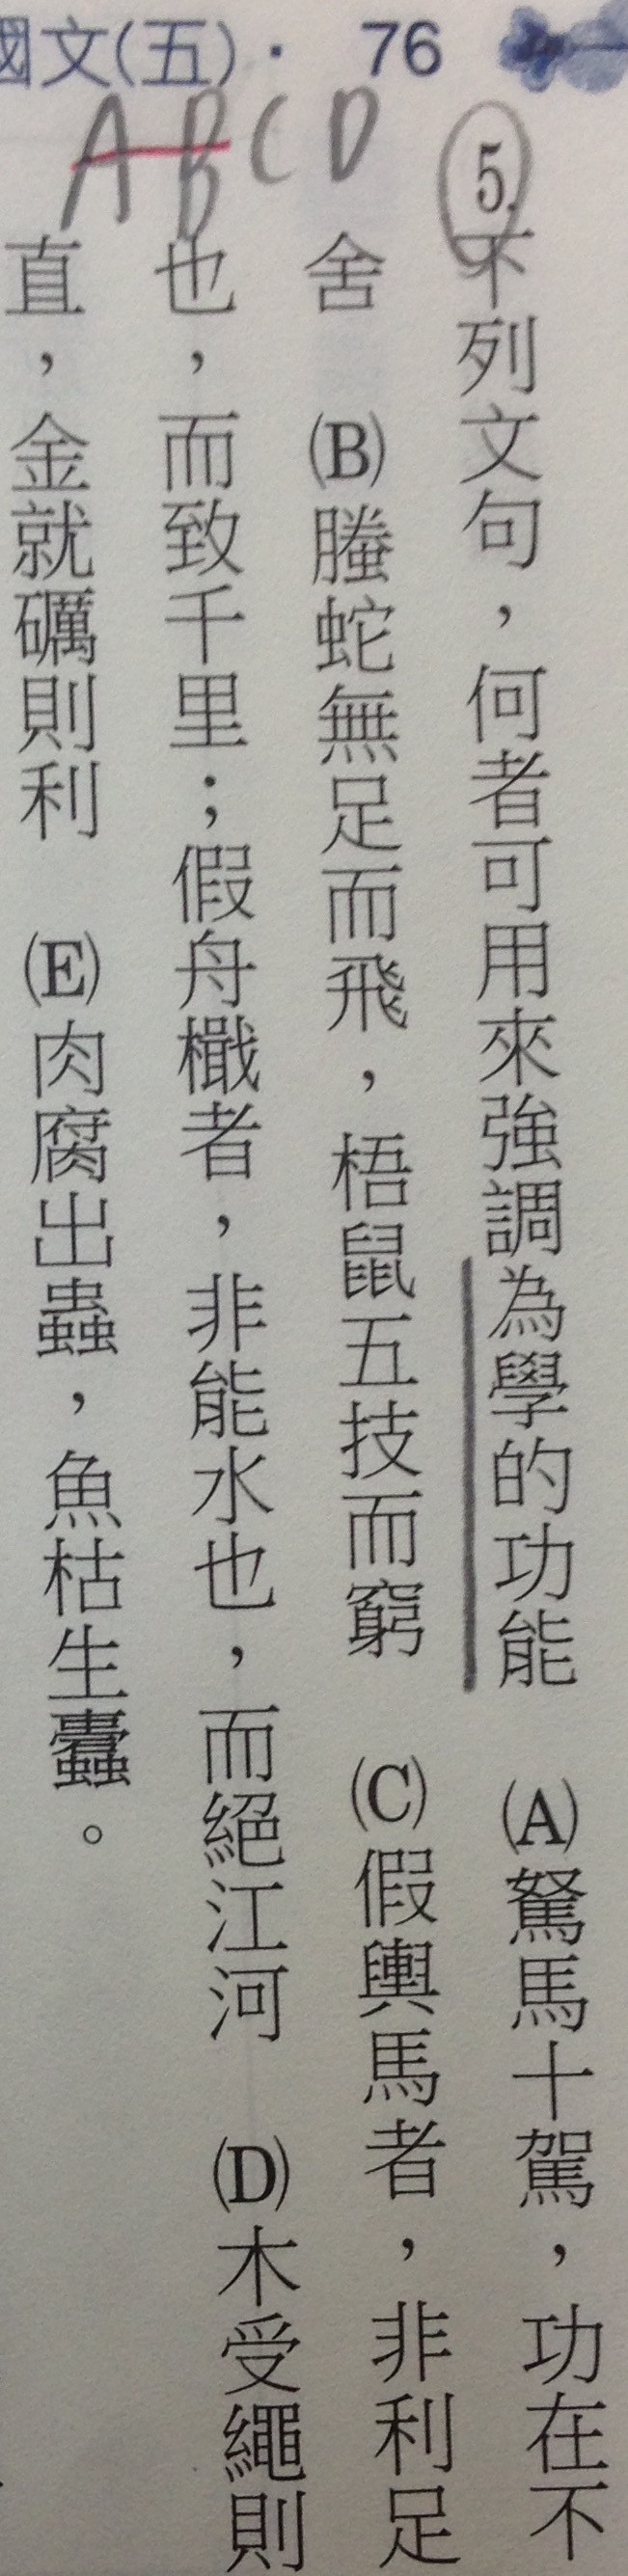 國文(五)· 76
A B C D
5.下列文句，何者可用來強調為學的功能 (A)駑馬十駕，功在不
舍 (B)螣蛇無足而飛，梧鼠五技而窮 (C)假輿馬者，非利足
也，而致千里；假舟檝者，非能水也，而絕江河 (D)木受繩則
直，金就礪則利 (E)肉腐出蟲，魚枯生蠹。